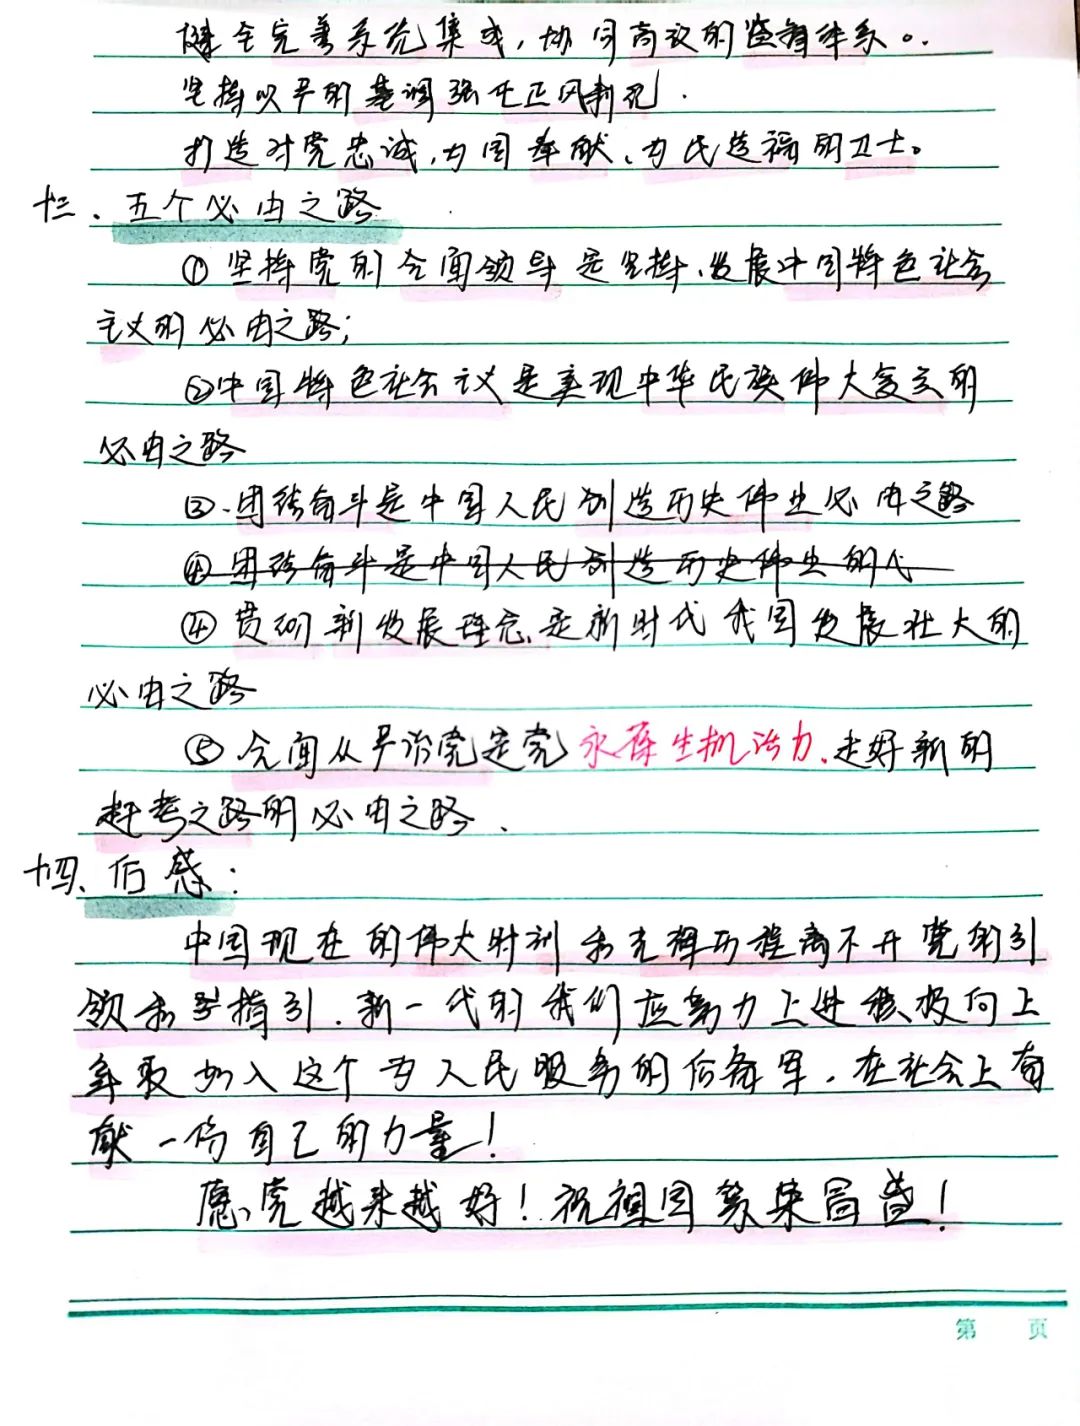 健全完善系统集成,协同高效的监督体系。
坚持以严的基调强化正风肃纪.
打造对党忠诚、为国奉献、为民造福的卫士。
十三、五个必由之路
①坚持党的全面领导是坚持、发展中国特色社会
主义的必由之路;
②中国特色社会主义是实现中华民族伟大复兴的
必由之路
③.团结奋斗是中国人民创造历史伟业必由之路
④团结奋斗是中国人民创造历史伟业的
④贯彻新发展理念是新时代我国发展壮大的
必由之路
⑤全面从严治党是党永葆生机活力、走好新的
赶考之路的必由之路.
十四、后感:
中国现在的伟大时刻和光辉历程离不开党的引
领和指引.新一代的我们应努力上进积极向上
争取加入这个为人民服务的后备军.在社会上奉
献一份自己的力量!
愿党越来越好!祝祖国繁荣昌盛!
第 页